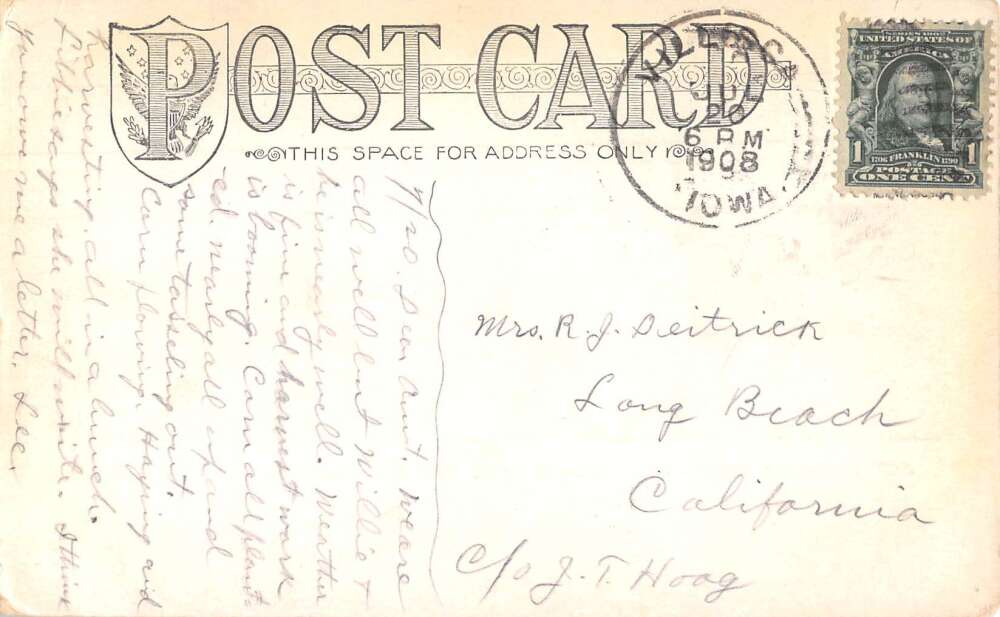 POST CARD
THIS SPACE FOR ADDRESS ONLY
VILLISCA
JUL
20
6 PM
1908
IOWA.
SERIES 1902
UNITED STATES OF
AMERICA
1706 FRANKLIN 1790
1 POSTAGE 1
ONE CENT
Mrs. R. J. Deitrick
Long Beach
California
c/o J. T. Hoag
7/20. Dear Aunt. We are
all well but Willie &
he is nearly well. Werther
is fine and harvest work
is booming. Corn all plant-
ed. nearly all up and
some tasseling out.
Corn plowing, Haying and
harvesting, all in a bunch.
Lillie says she will write. I think
you owe me a letter. Lee.